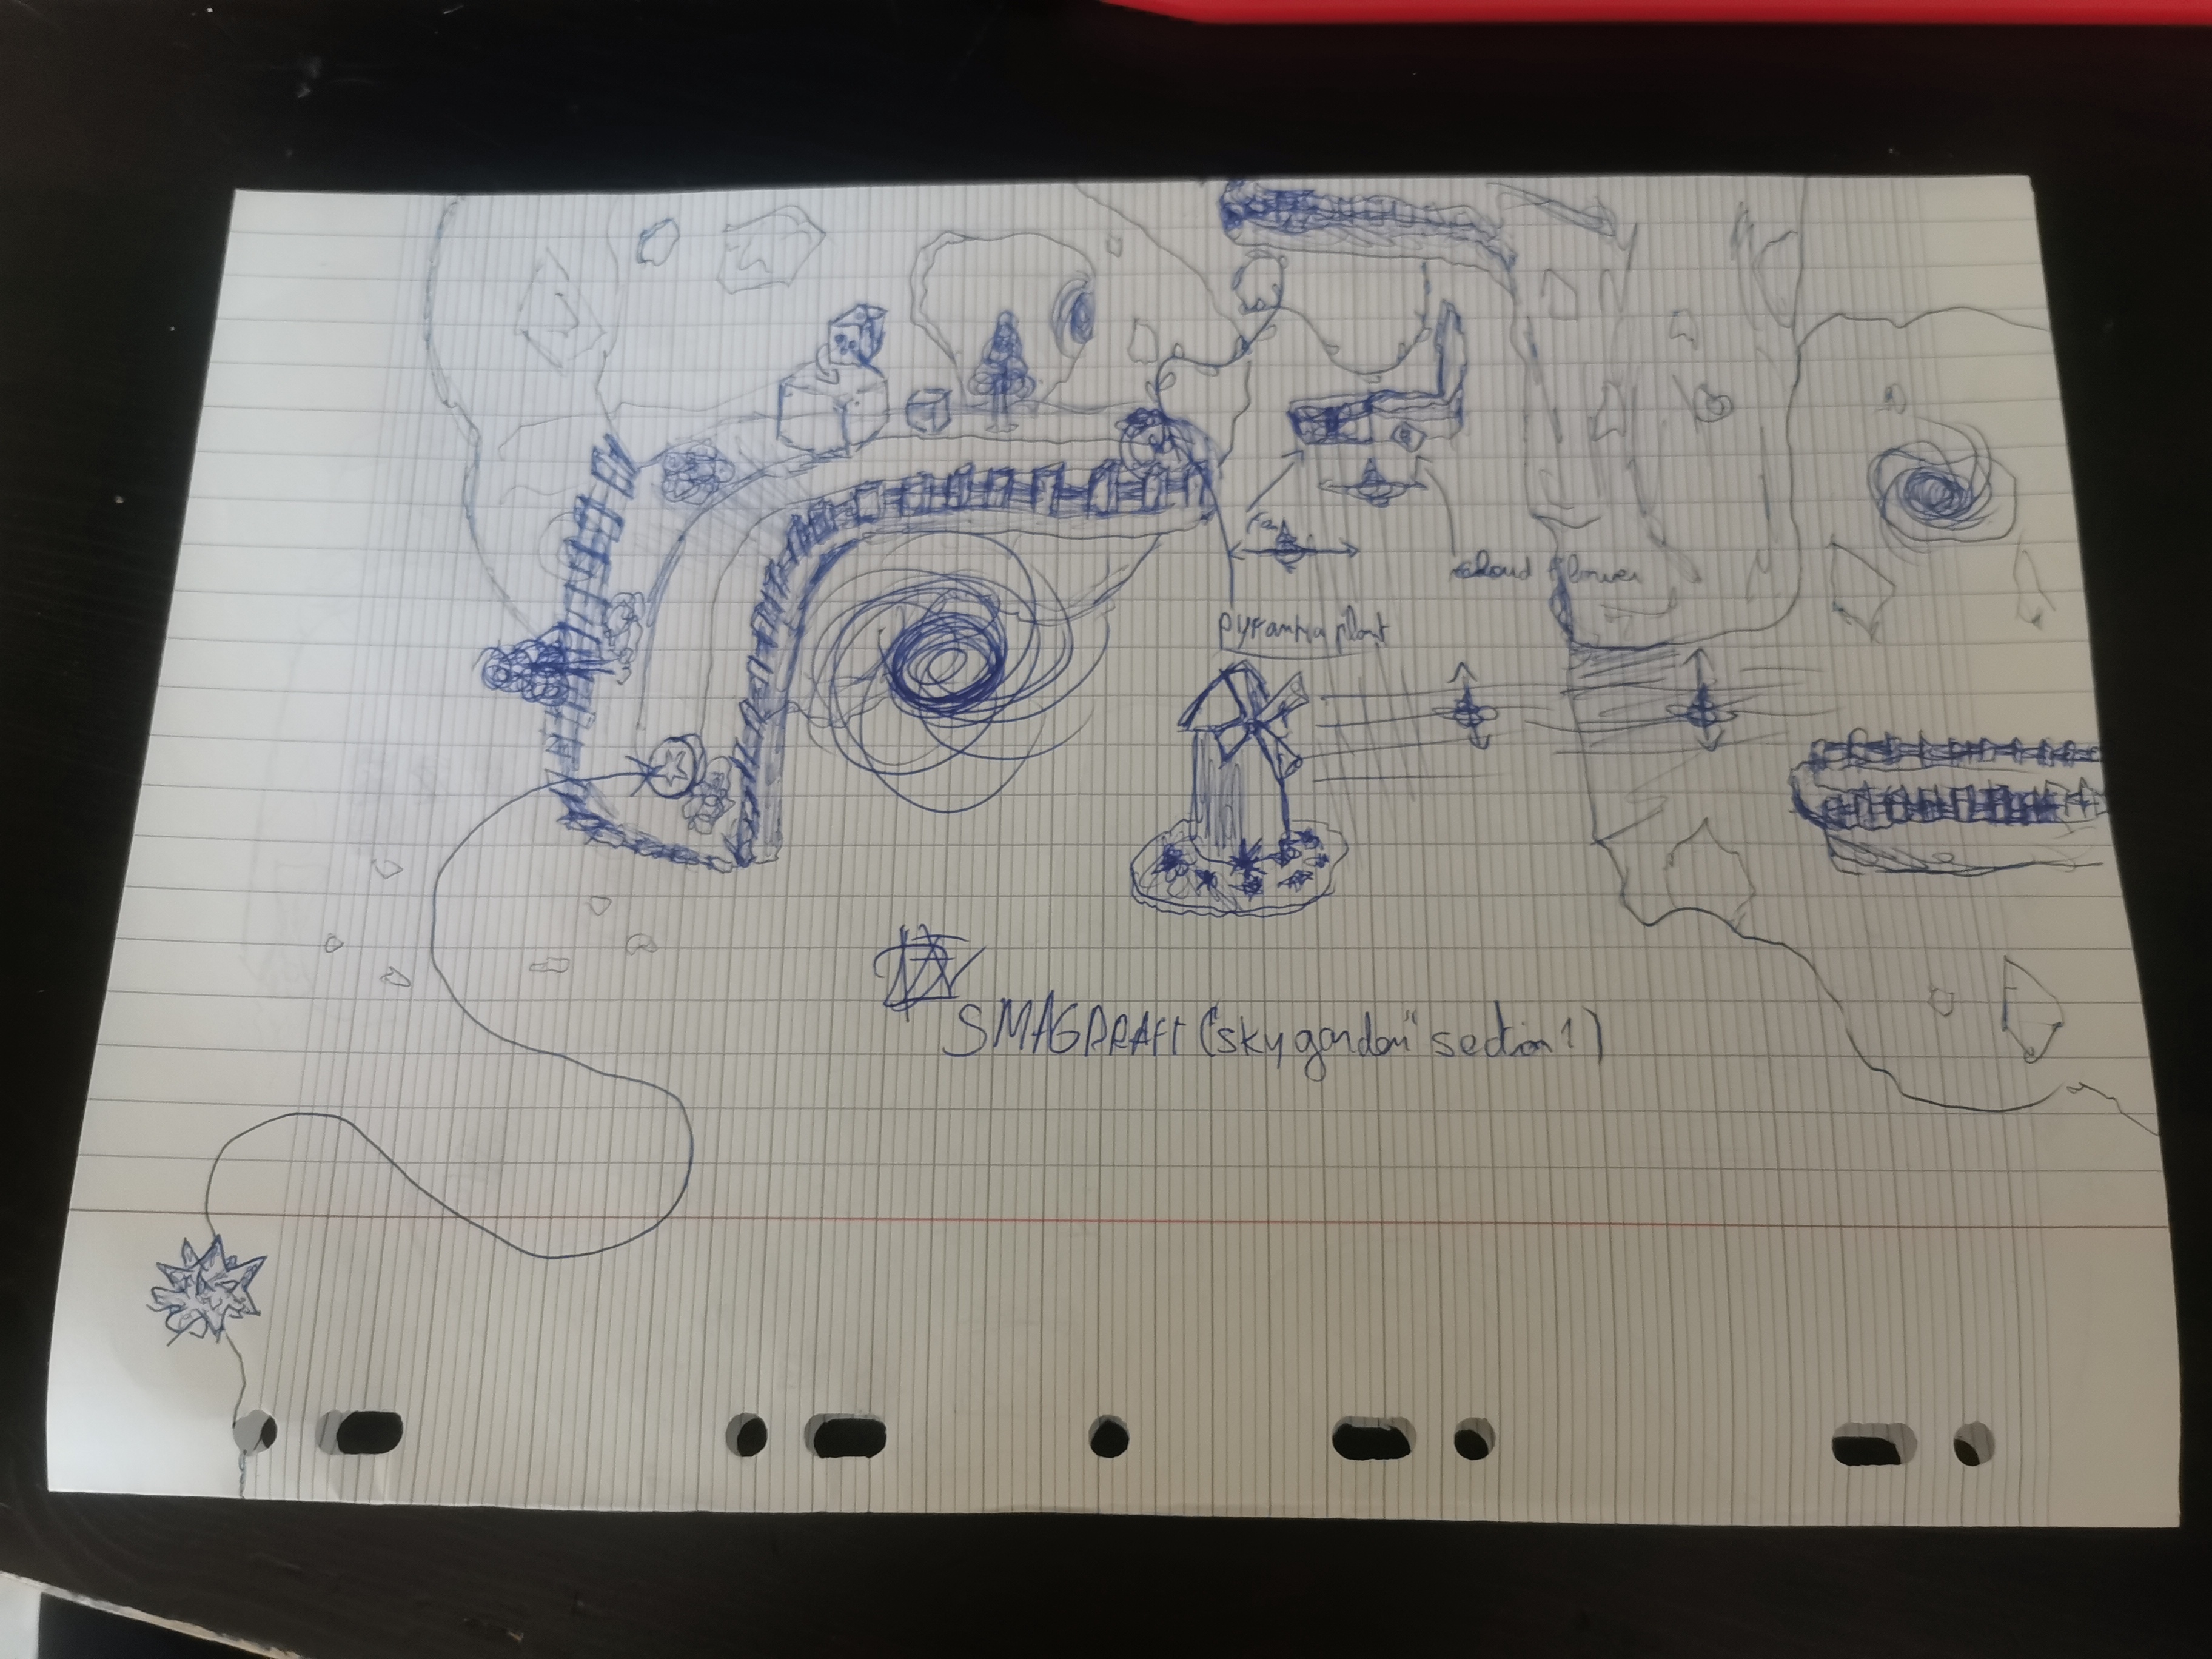 Fan
cloud flower
pyranha plant
SMAG DRAFT ("sky garden" section 1)